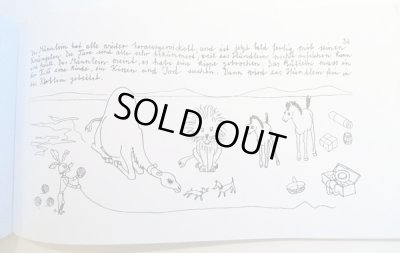 34
Das Männlein hat alle wieder herausgewickelt und ist jetzt bald fertig mit seinen
Die Tiere sind alle sehr bekümmert, weil das Hündlein nicht aufstehen kann
Das Männlein meint, es habe eine Rippe gebrochen. Das Büblein muss in
eine Binde, ein Kissen und Jod suchen. Dann wird das Hündlein fein in
gebettet.
SOLD OUT